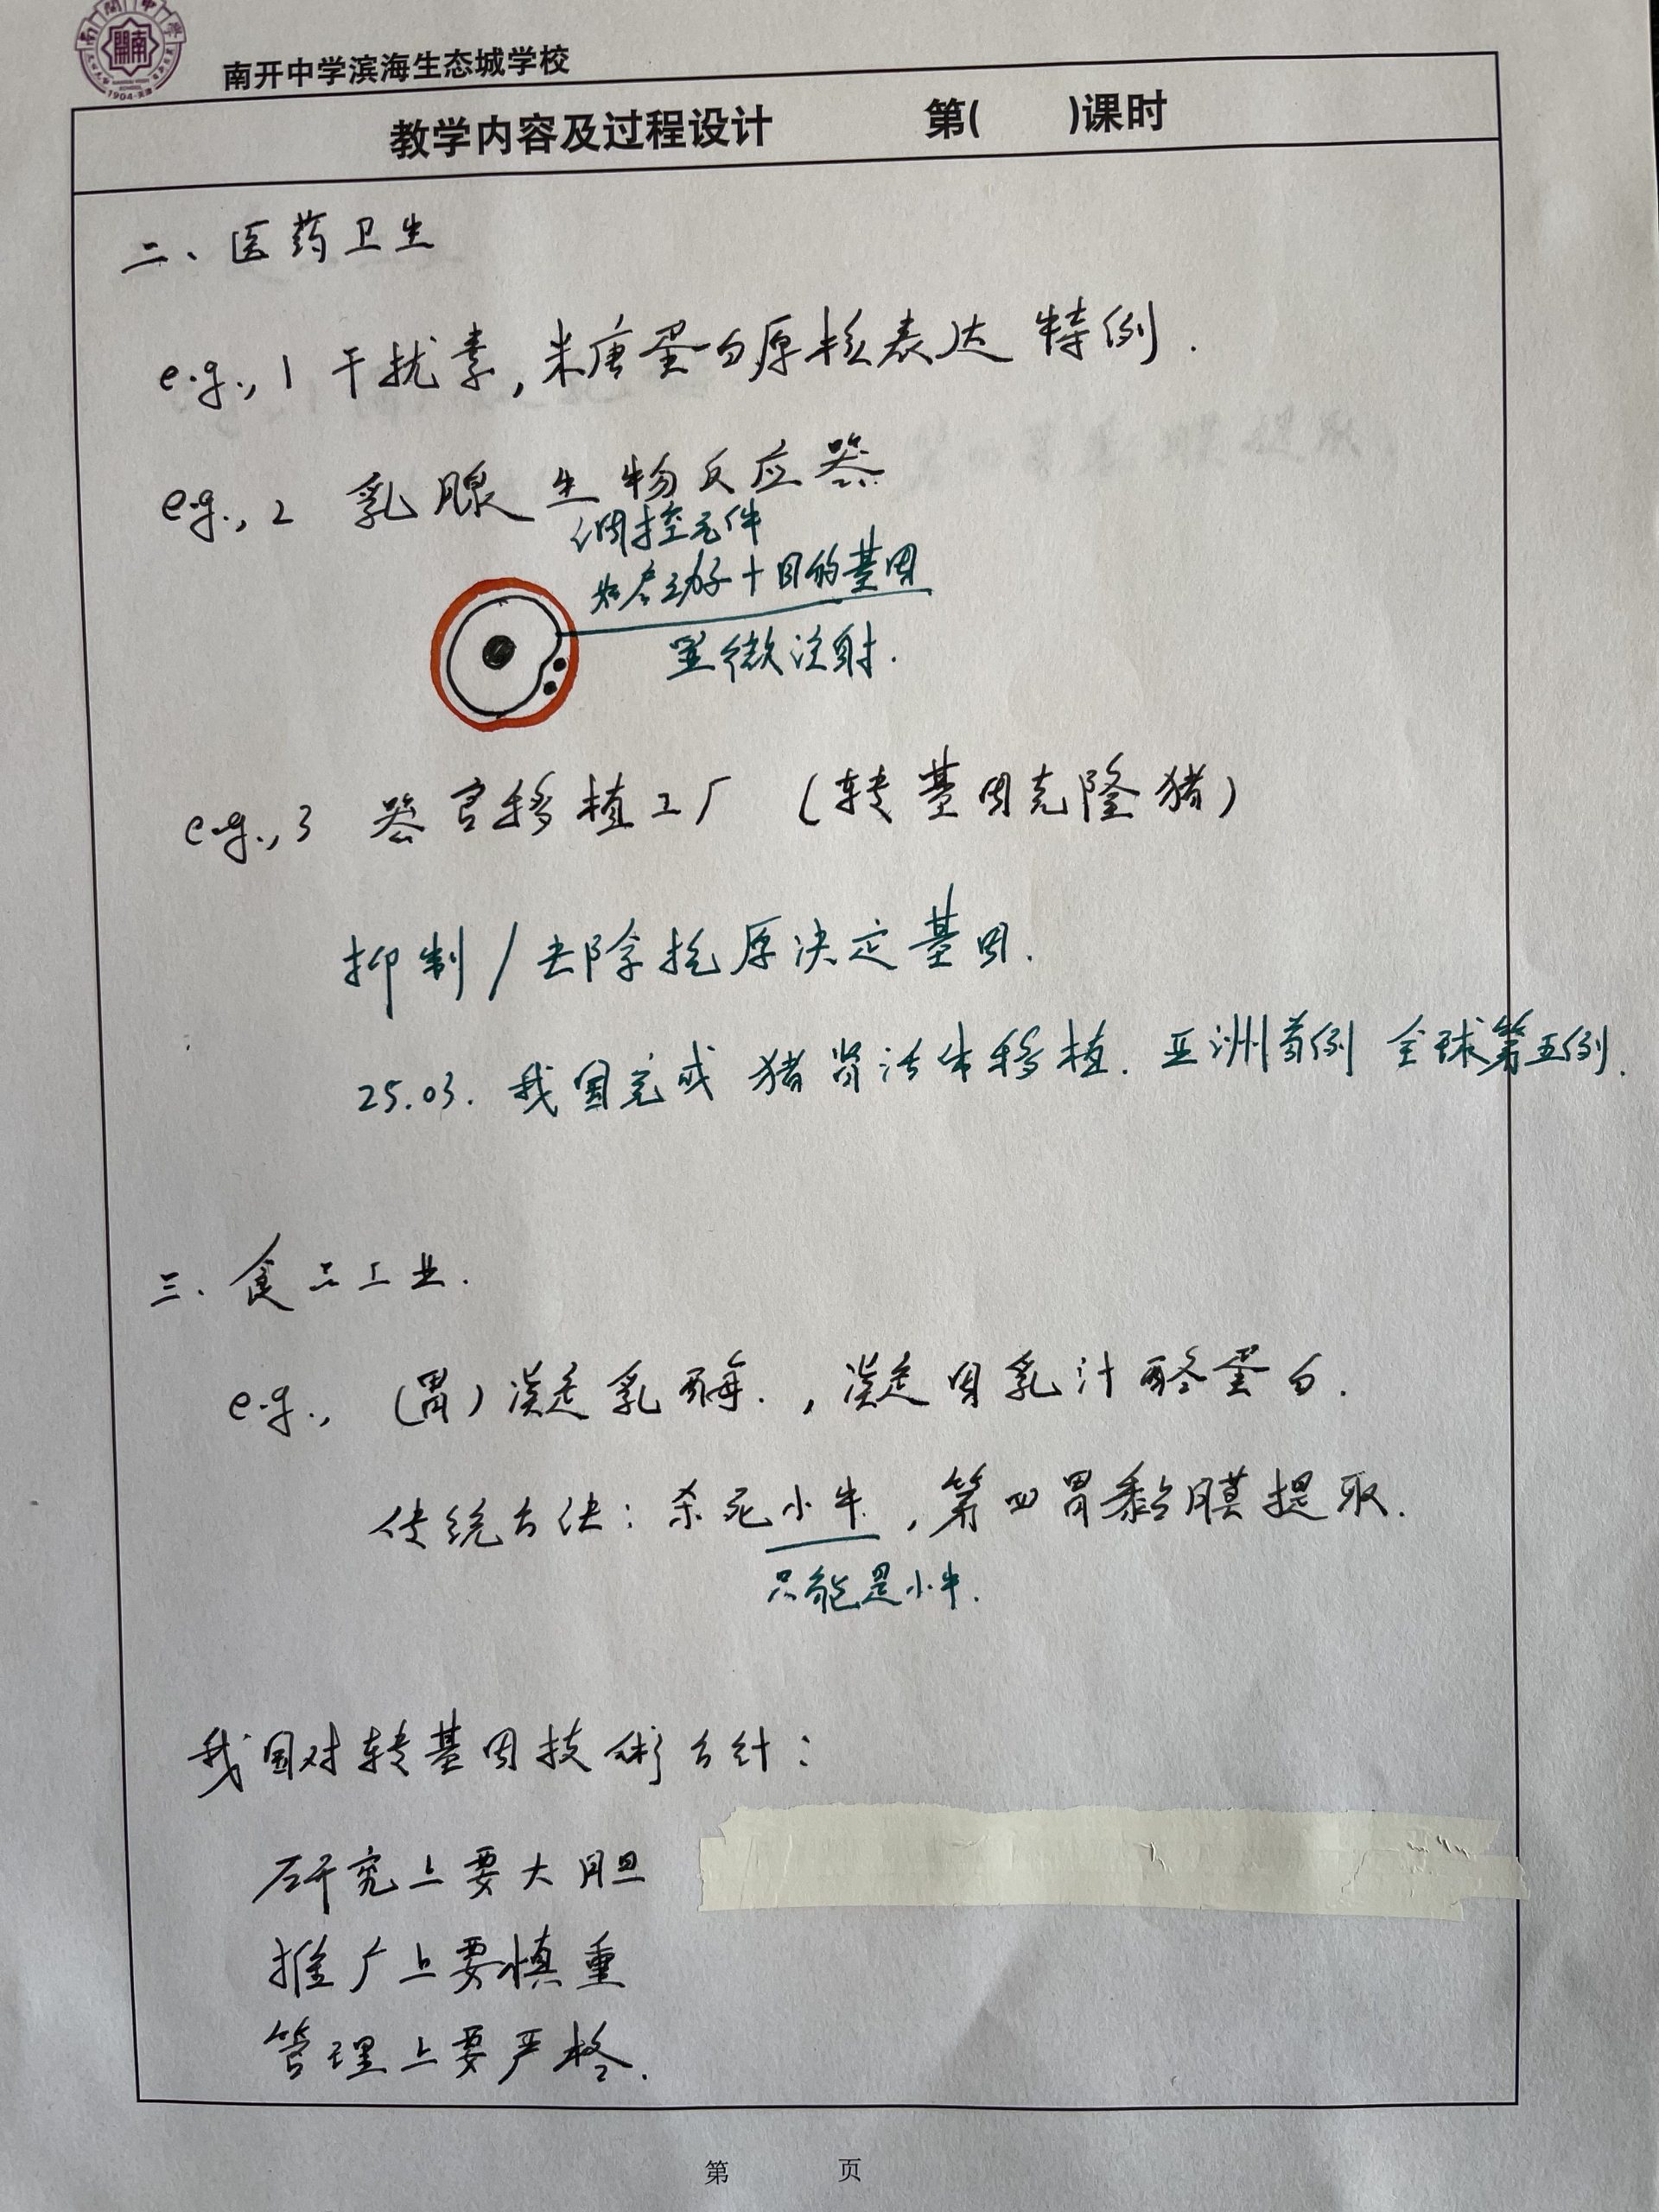 南开中学滨海生态城学校
1904·天津
教学内容及过程设计 第( )课时
二、医药卫生
e.g., 1 干扰素,米唐蛋白原核表达 特例.
e.g., 2 乳腺生物反应器
调控元件
如启动子+目的基因
显微注射.
e.g., 3 器官移植工厂 (转基因克隆猪)
抑制/去除抗原决定基因.
25.03. 我国完成 猪肾活体移植. 亚洲首例 全球第五例.
三、食品工业.
e.g., (胃)凝乳酶. , 凝固乳汁酪蛋白.
传统方法: 杀死小牛, 第四胃黏膜提取.
只能是小牛.
我国对转基因技術方针:
研究上要大胆
推广上要慎重
管理上要严格.
第 页